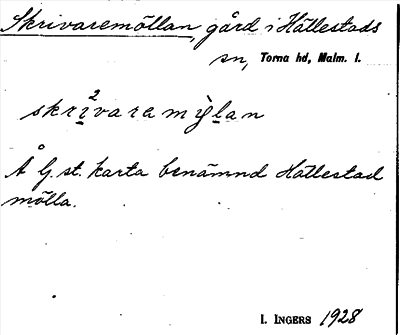 Skrivaremöllan, gård i Hällestads
sn, Torna hd, Malm. l.
skrì²varamỳlan
Å G. st. karta benämnd Hällestad
mölla.
I. INGERS 1928